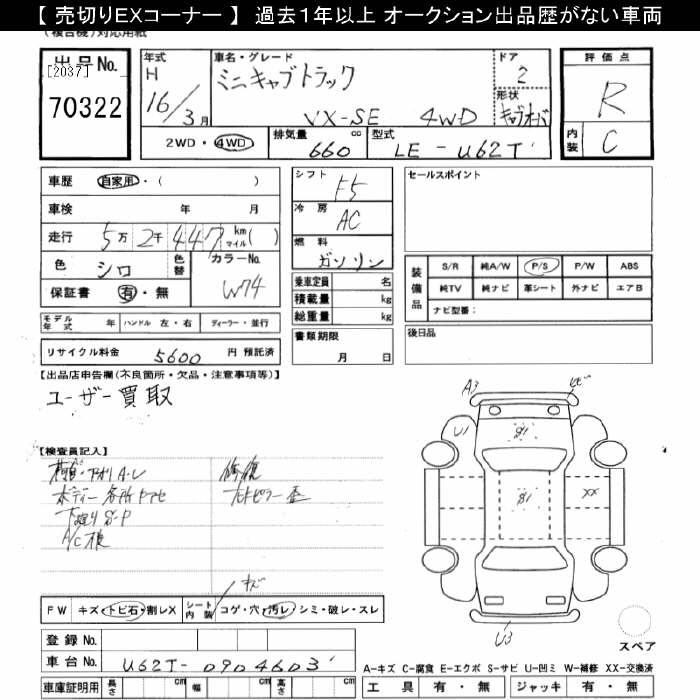 【 売切りEXコーナー 】 過去1年以上 オークション出品歴がない車両
(複合機)対応用紙
出品No.
[2037]
70322
年式
H
16/3月
車名・グレード
ミニキャブトラック
VX-SE 4WD
ドア
2
形状
キャブオーバ
評価点
R
内装
C
2WD・4WD
排気量
660 cc
型式
LE-U62T
車歴 自家用・( )
車検 年 月
走行 5万 2千 447 km マイル( )
色 シロ
色替
カラーNo.
W74
保証書 有・無
シフト
F5
冷房
AC
燃料
ガソリン
乗車定員 名
積載量 kg
総重量 kg
書類期限
月 日
セールスポイント
装備品
S/R 純A/W P/S P/W ABS
純TV 純ナビ 革シート 外ナビ エアB
ナビ型番:
後日品
モデル年式 年 ハンドル 左・右 ディーラー・並行
リサイクル料金 5600 円 預託済
【出品店申告欄(不良箇所・欠品・注意事項等)】
ユーザー買取
【検査員記入】
ボディー各所
下廻りS-P
修復
A3
U1
S1
S1
XX
U3
キズ
FW キズ・トビ石・割レX
シート内装 コゲ・穴・汚レ・シミ・破レ・スレ
登録No.
車台No. U62T-0904603
車庫証明用 長さ cm 幅 cm 高さ cm
スペア
A-キズ C-腐食 E-エクボ S-サビ U-凹ミ W-補修 XX-交換済
工具 有・無 ジャッキ 有・無